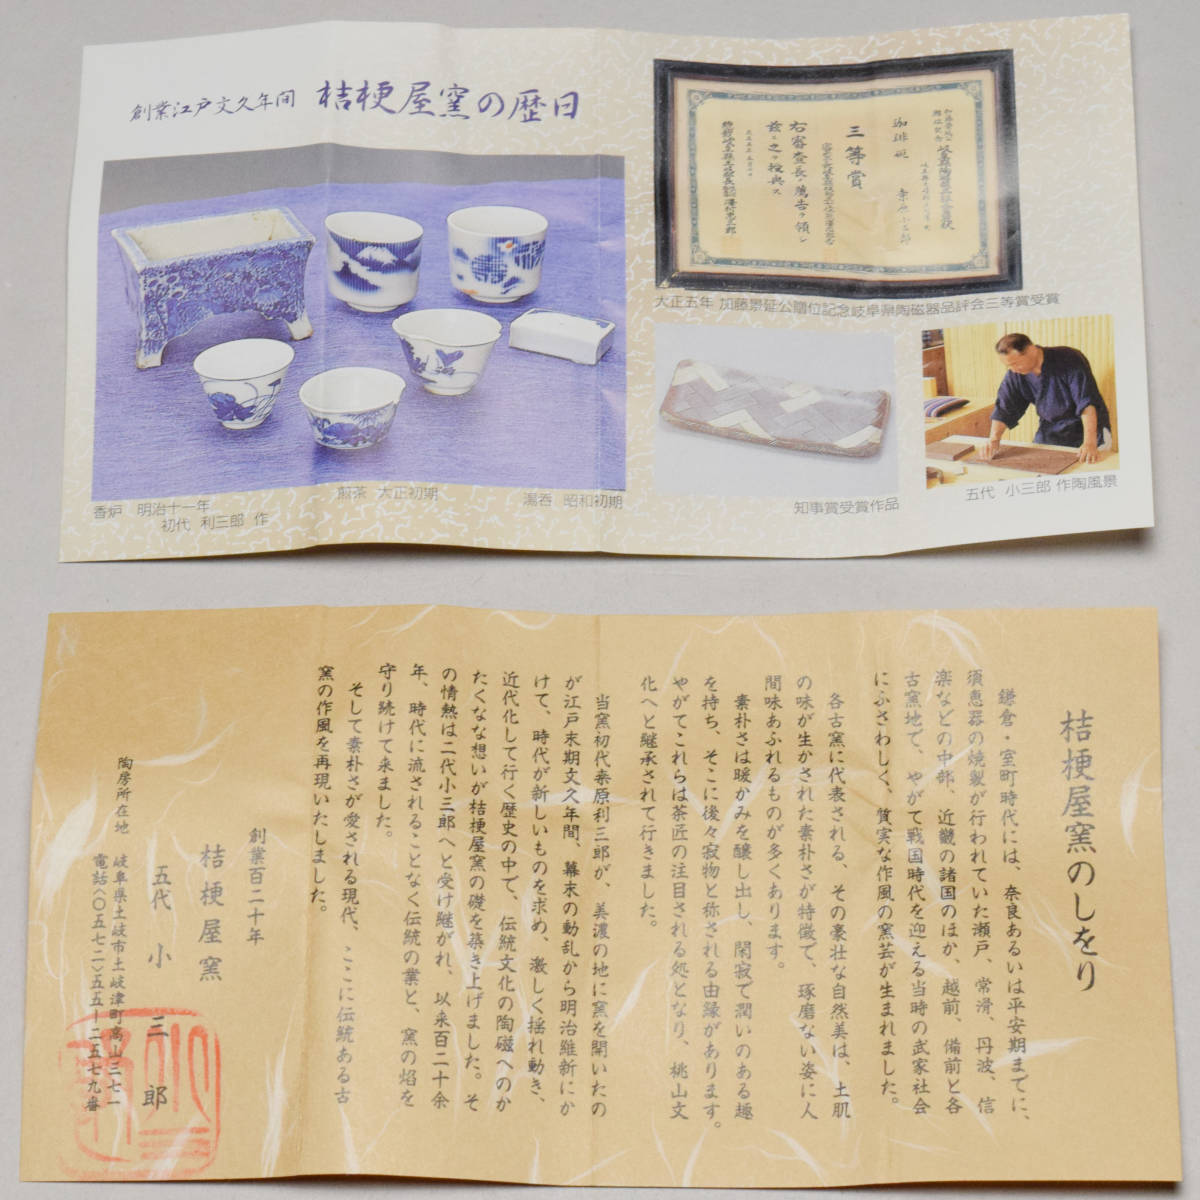 創業江戸文久年間　桔梗屋窯の歴日
三等賞
右審査長ノ薦告ヲ領シ
玆ニ之ヲ授與ス
大正五年 加藤景延公贈位記念岐阜県陶磁器品評会三等賞受賞
香炉　明治十一年
初代　利三郎　作
煎茶　大正初期
湯呑　昭和初期
知事賞受賞作品
五代　小三郎 作陶風景
桔梗屋窯のしをり
鎌倉・室町時代には、奈良あるいは平安期までに、
須恵器の焼製が行われていた瀬戸、常滑、丹波、信
楽などの中部、近畿の諸国のほか、越前、備前と各
古窯地で、やがて戦国時代を迎える当時の武家社会
にふさわしく、質実な作風の窯芸が生まれました。
各古窯に代表される、その豪壮な自然美は、土肌
の味が生かされた素朴さが特徴で、琢磨ない姿に人
間味あふれるものが多くあります。
素朴さは暖かみを醸し出し、閑寂で潤いのある趣
を持ち、そこに後々寂物と称される由縁があります。
やがてこれらは茶匠の注目される処となり、桃山文
化へと継承されて行きました。
当窯初代桒原利三郎が、美濃の地に窯を開いたの
が江戸末期文久年間、幕末の動乱から明治維新にか
けて、時代が新しいものを求め、激しく揺れ動き、
近代化して行く歴史の中で、伝統文化の陶磁へのか
たくなな想いが桔梗屋窯の礎を築き上げました。そ
の情熱は二代小三郎へと受け継がれ、以来百二十余
年、時代に流されることなく伝統の業と、窯の焰を
守り続けて来ました。
そして素朴さが愛される現代、ここに伝統ある古
窯の作風を再現いたしました。
創業百二十年
桔梗屋窯
五代　小三郎
陶房所在地　岐阜県土岐市土岐津町高山三七一
電話〈〇五七二〉五五ー二五七九番